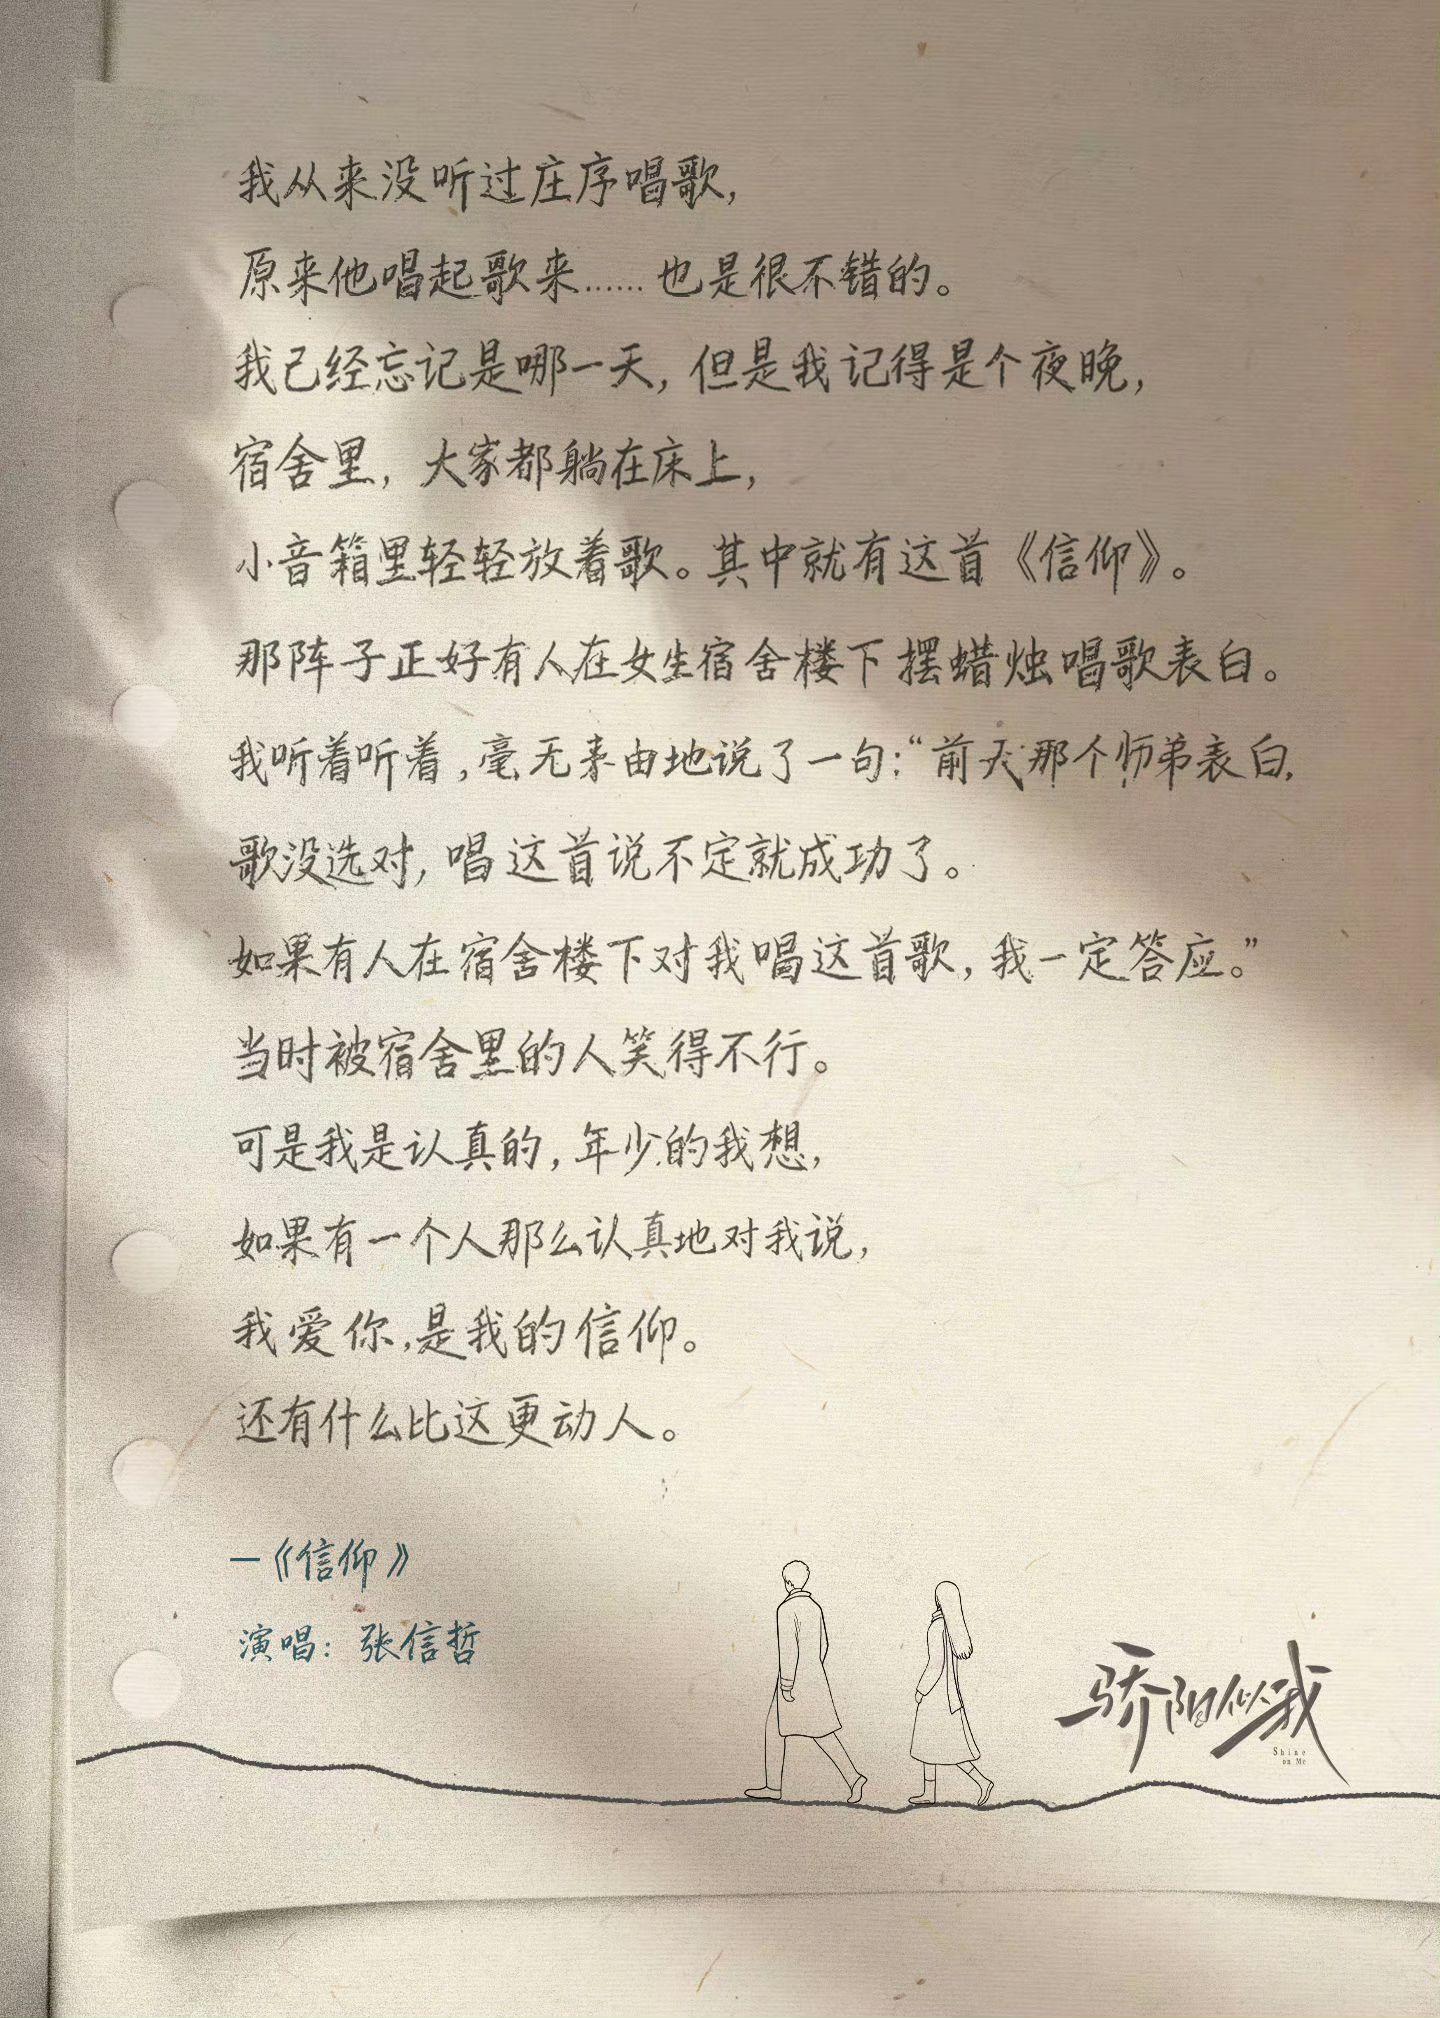 我从来没听过庄序唱歌，
原来他唱起歌来……也是很不错的。
我已经忘记是哪一天，但是我记得是个夜晚，
宿舍里，大家都躺在床上，
小音箱里轻轻放着歌。其中就有这首《信仰》。
那阵子正好有人在女生宿舍楼下摆蜡烛唱歌表白。
我听着听着，毫无来由地说了一句：“前天那个师弟表白，
歌没选对，唱这首说不定就成功了。
如果有人在宿舍楼下对我唱这首歌，我一定答应。”
当时被宿舍里的人笑得不行。
可是我是认真的，年少的我想，
如果有一个人那么认真地对我说，
我爱你，是我的信仰。
还有什么比这更动人。
—《信仰》
演唱：张信哲
骄阳似我
Shine
on Me